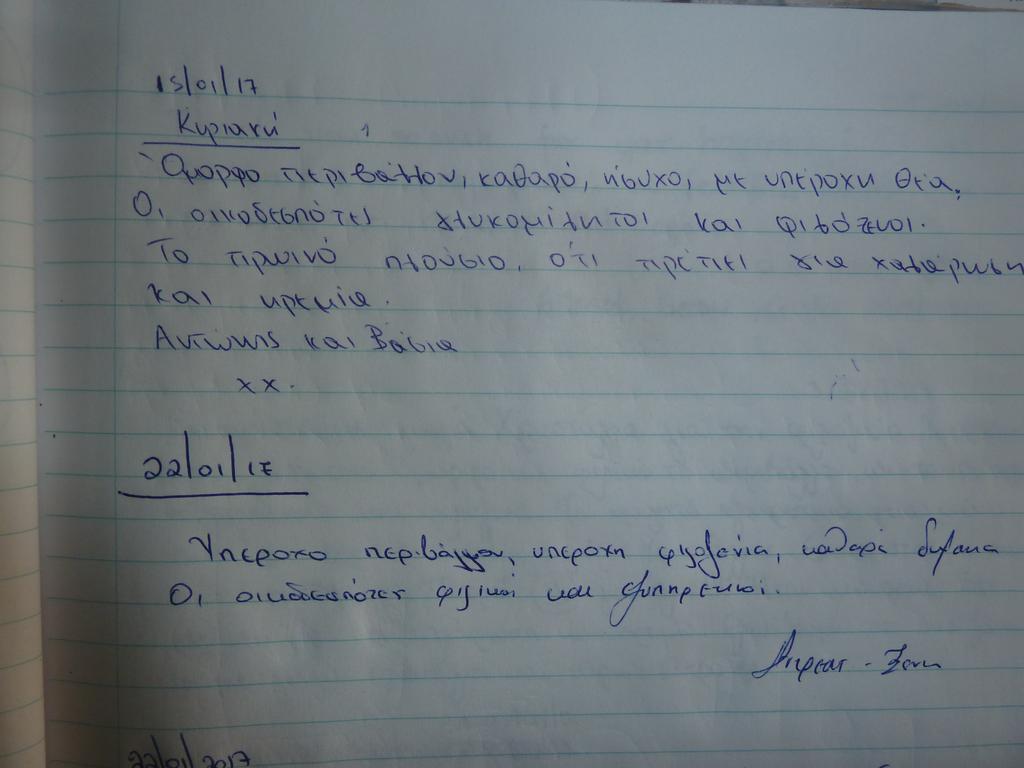 15/01/17
Κυριακή
Όμορφο περιβάλλον, καθαρό, ήσυχο, με υπέροχη θέα.
Οι οικοδεσπότες γλυκομίλητοι και φιλόξενοι.
Το πρωινό πλούσιο, ότι πρέπει για χαλάρωση
και ηρεμία.
Αντώνης και Βάσια
xx.
22/01/17
Υπεροχο περιβάλλον, υπεροχη φιλοξενια, καθαρά
Οι οικοδεσπότες φιλικοί και εξυπηρετικοι.
22/01/2017